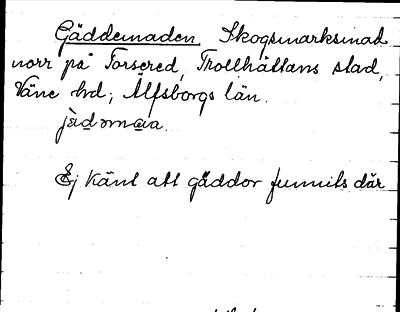 Gäddemaden Skogsmarksmad
norr på Torsered, Trollhättans stad,
Väne hd; Älfsborgs län.
Ej känt att gäddor funnits där